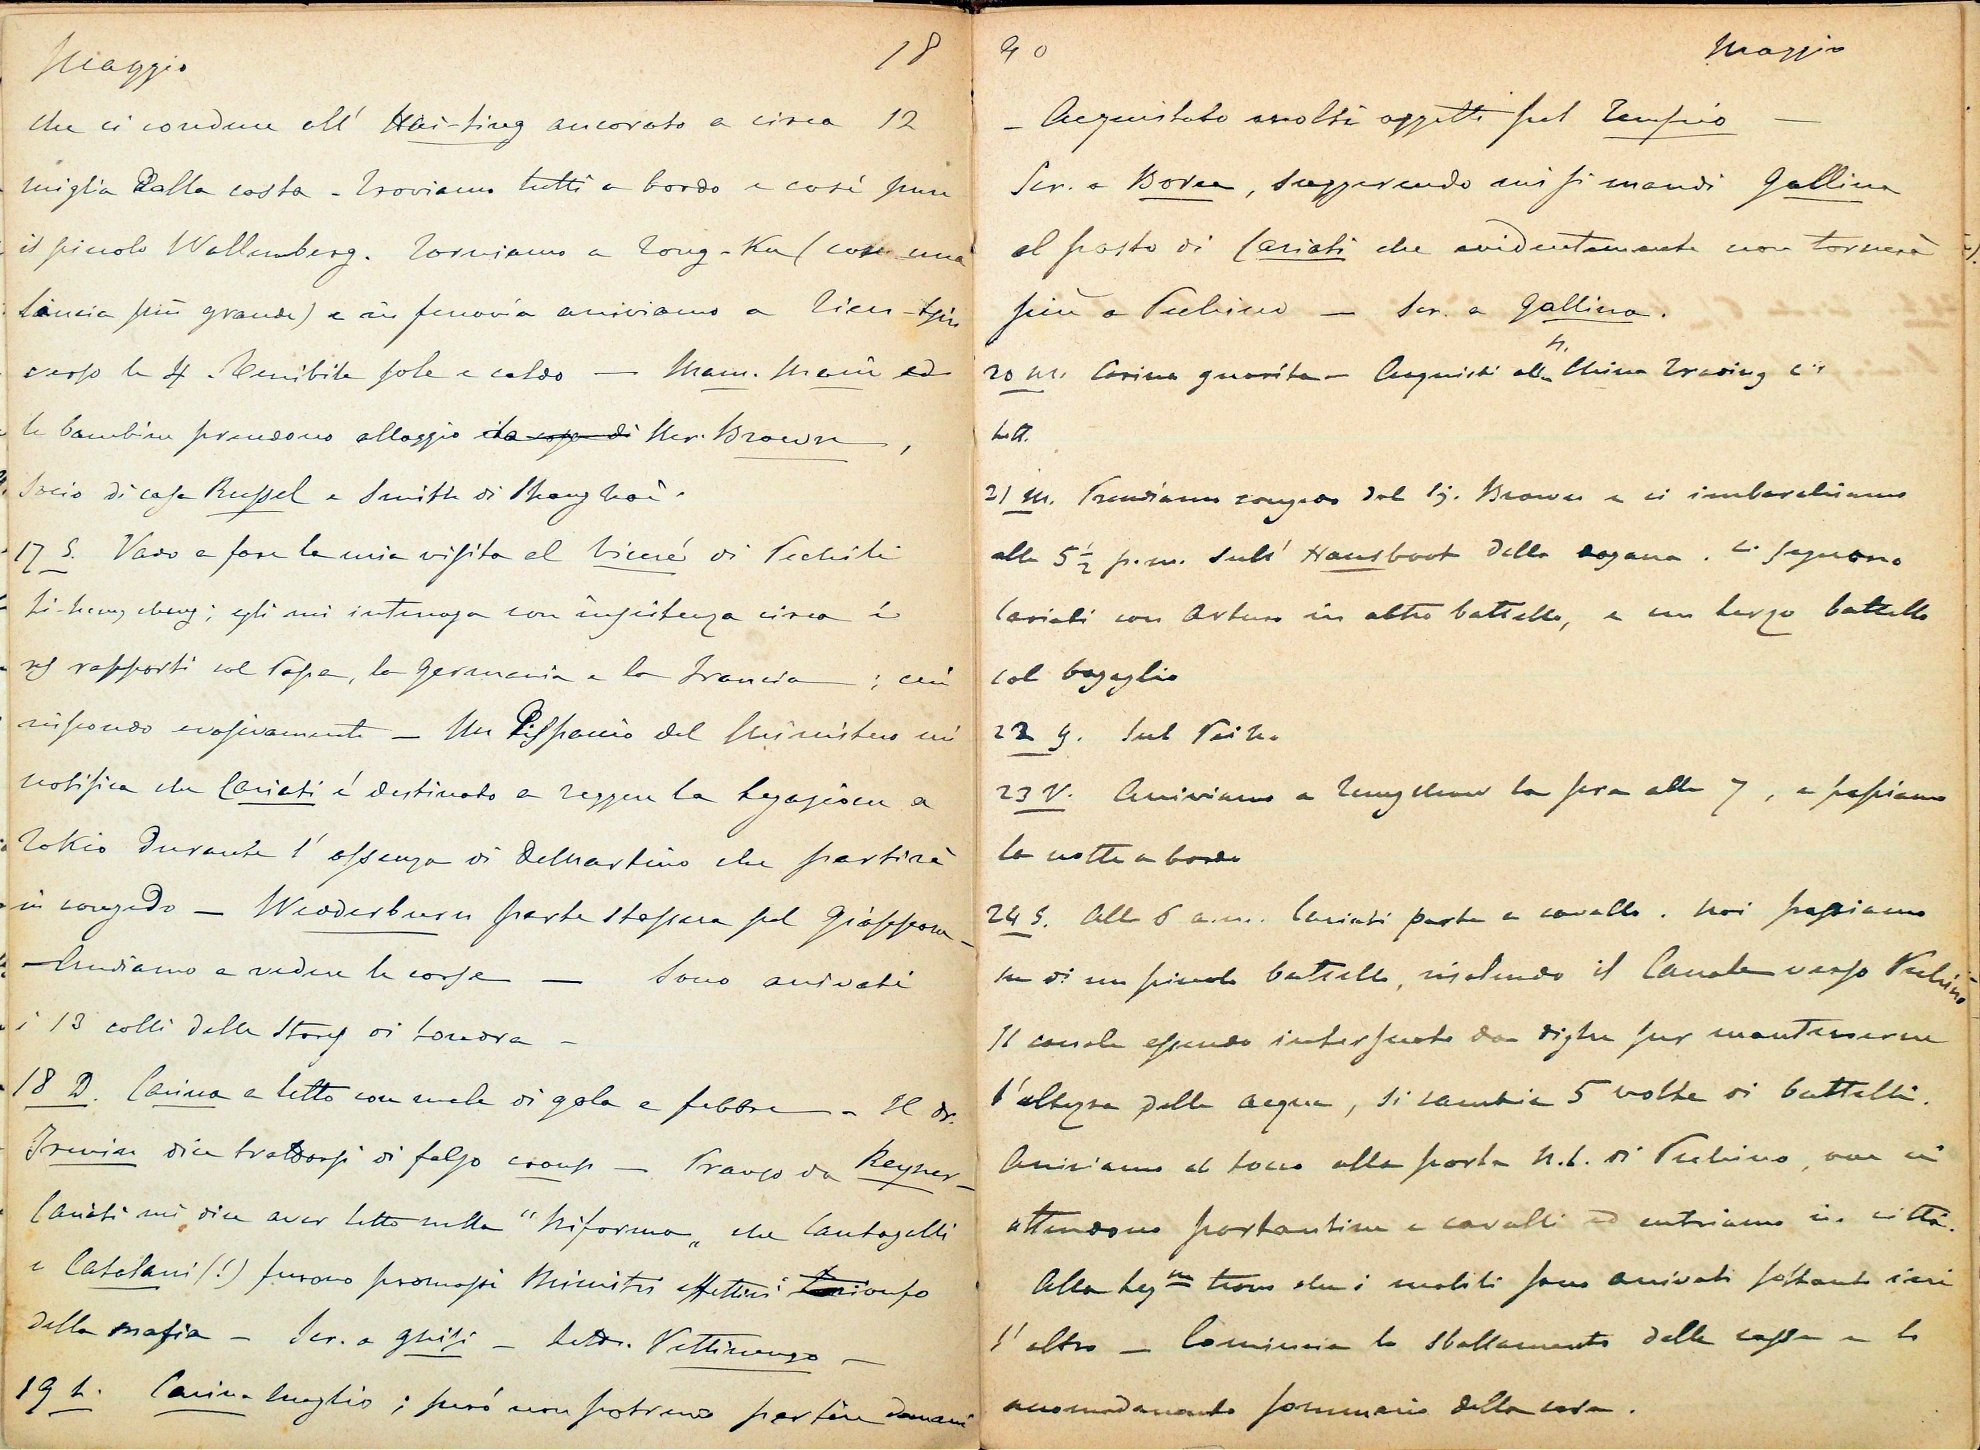 Maggio 18
che ci conduce all' Hai-ting ancorato a circa 12
miglia dalla costa - Troviamo tutti a bordo e così pure
il piccolo Wallemberg. Torniamo a Tong-Ku (con una
lancia più grande) e in ferrovia arriviamo a Tien-tsin
verso le 4. Terribile sole e caldo — Mam. Main ed
le bambine prendono alloggio da Mr. Brown,
socio di casa Russel e Smith di Shanghai.
17 S. Vado a fare la mia visita al Vicerè di Pechili
Li-hung chang; egli mi interroga con insistenza circa i
ns rapporti col Papa, la Germania e la Francia; cui
rispondo evasivamente — Un Dispaccio del Ministero mi
notifica che Cariati è destinato a reggere la Legazione a
Tokio durante l'assenza di DeMartino che partirà
in congedo — Wedderburn parte stassera pel Giappone -
Andiamo a vedere le corse — Sono arrivati
i 13 colli delle Stores di Londra -
18 D. Carina a letto con male di gola e febbre - Il dr.
Irwin dice trattarsi di falso croup — Pranzo da Reyner -
Cariati mi dice aver letto nella "Riforma" che Cantagalli
e Catalani (!) furono promossi Ministri effettivi trionfo
della mafia - Scr. a Ghisi - Lett. Vettinengo -
19 L. Carina meglio; però non potremo partire domani
40 Maggio
- Acquistato molti oggetti pel Tempio —
Scr. a Borea, suggerendo mi si mandi Gallina
al posto di Cariati che evidentemente non tornerà
più a Pechino — Scr. a Gallina.
20 M. Carina guarita - Acquisti alla N. China Trading C°
Lett.
21 M. Prendiamo congedo dal Sig. Brown e ci imbarchiamo
alle 5 1/2 p.m. sull' Hausboot della dogana. Ci seguono
Cariati con Arturo in altro battello, e un terzo battello
col bagaglio
22 G. Sul Peiho
23 V. Arriviamo a Tungchow la sera alle 7, e passiamo
la notte a bordo
24 S. Alle 6 a.m. Cariati parte a cavallo. Noi passiamo
su di un piccolo battello, risalendo il Canale verso Pechino
Il canale essendo intersecato da dighe per mantenerne
l'altezza delle acque, si cambia 5 volte di battelli.
Arriviamo al tocco alla porta N.E. di Pechino, ove ci
attendono portantine e cavalli ed entriamo in città.
Alla Legne trovo che i mobili sono arrivati soltanto ieri
l'altro — Comincia lo sballamento delle casse e lo
accomodamento sommario della casa.